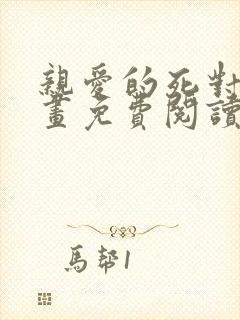 親愛的死對
畫免費閱讀
馬幇1